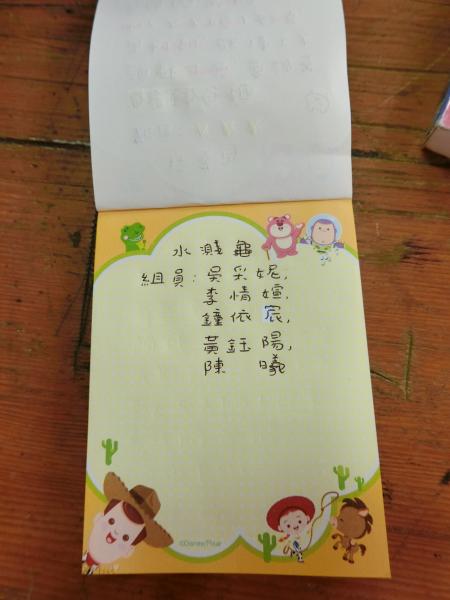 水濺龜
組員:吳采妮,
李情媗,
鐘依宸,
黃鈺陽,
陳 曦
©Disney/Pixar